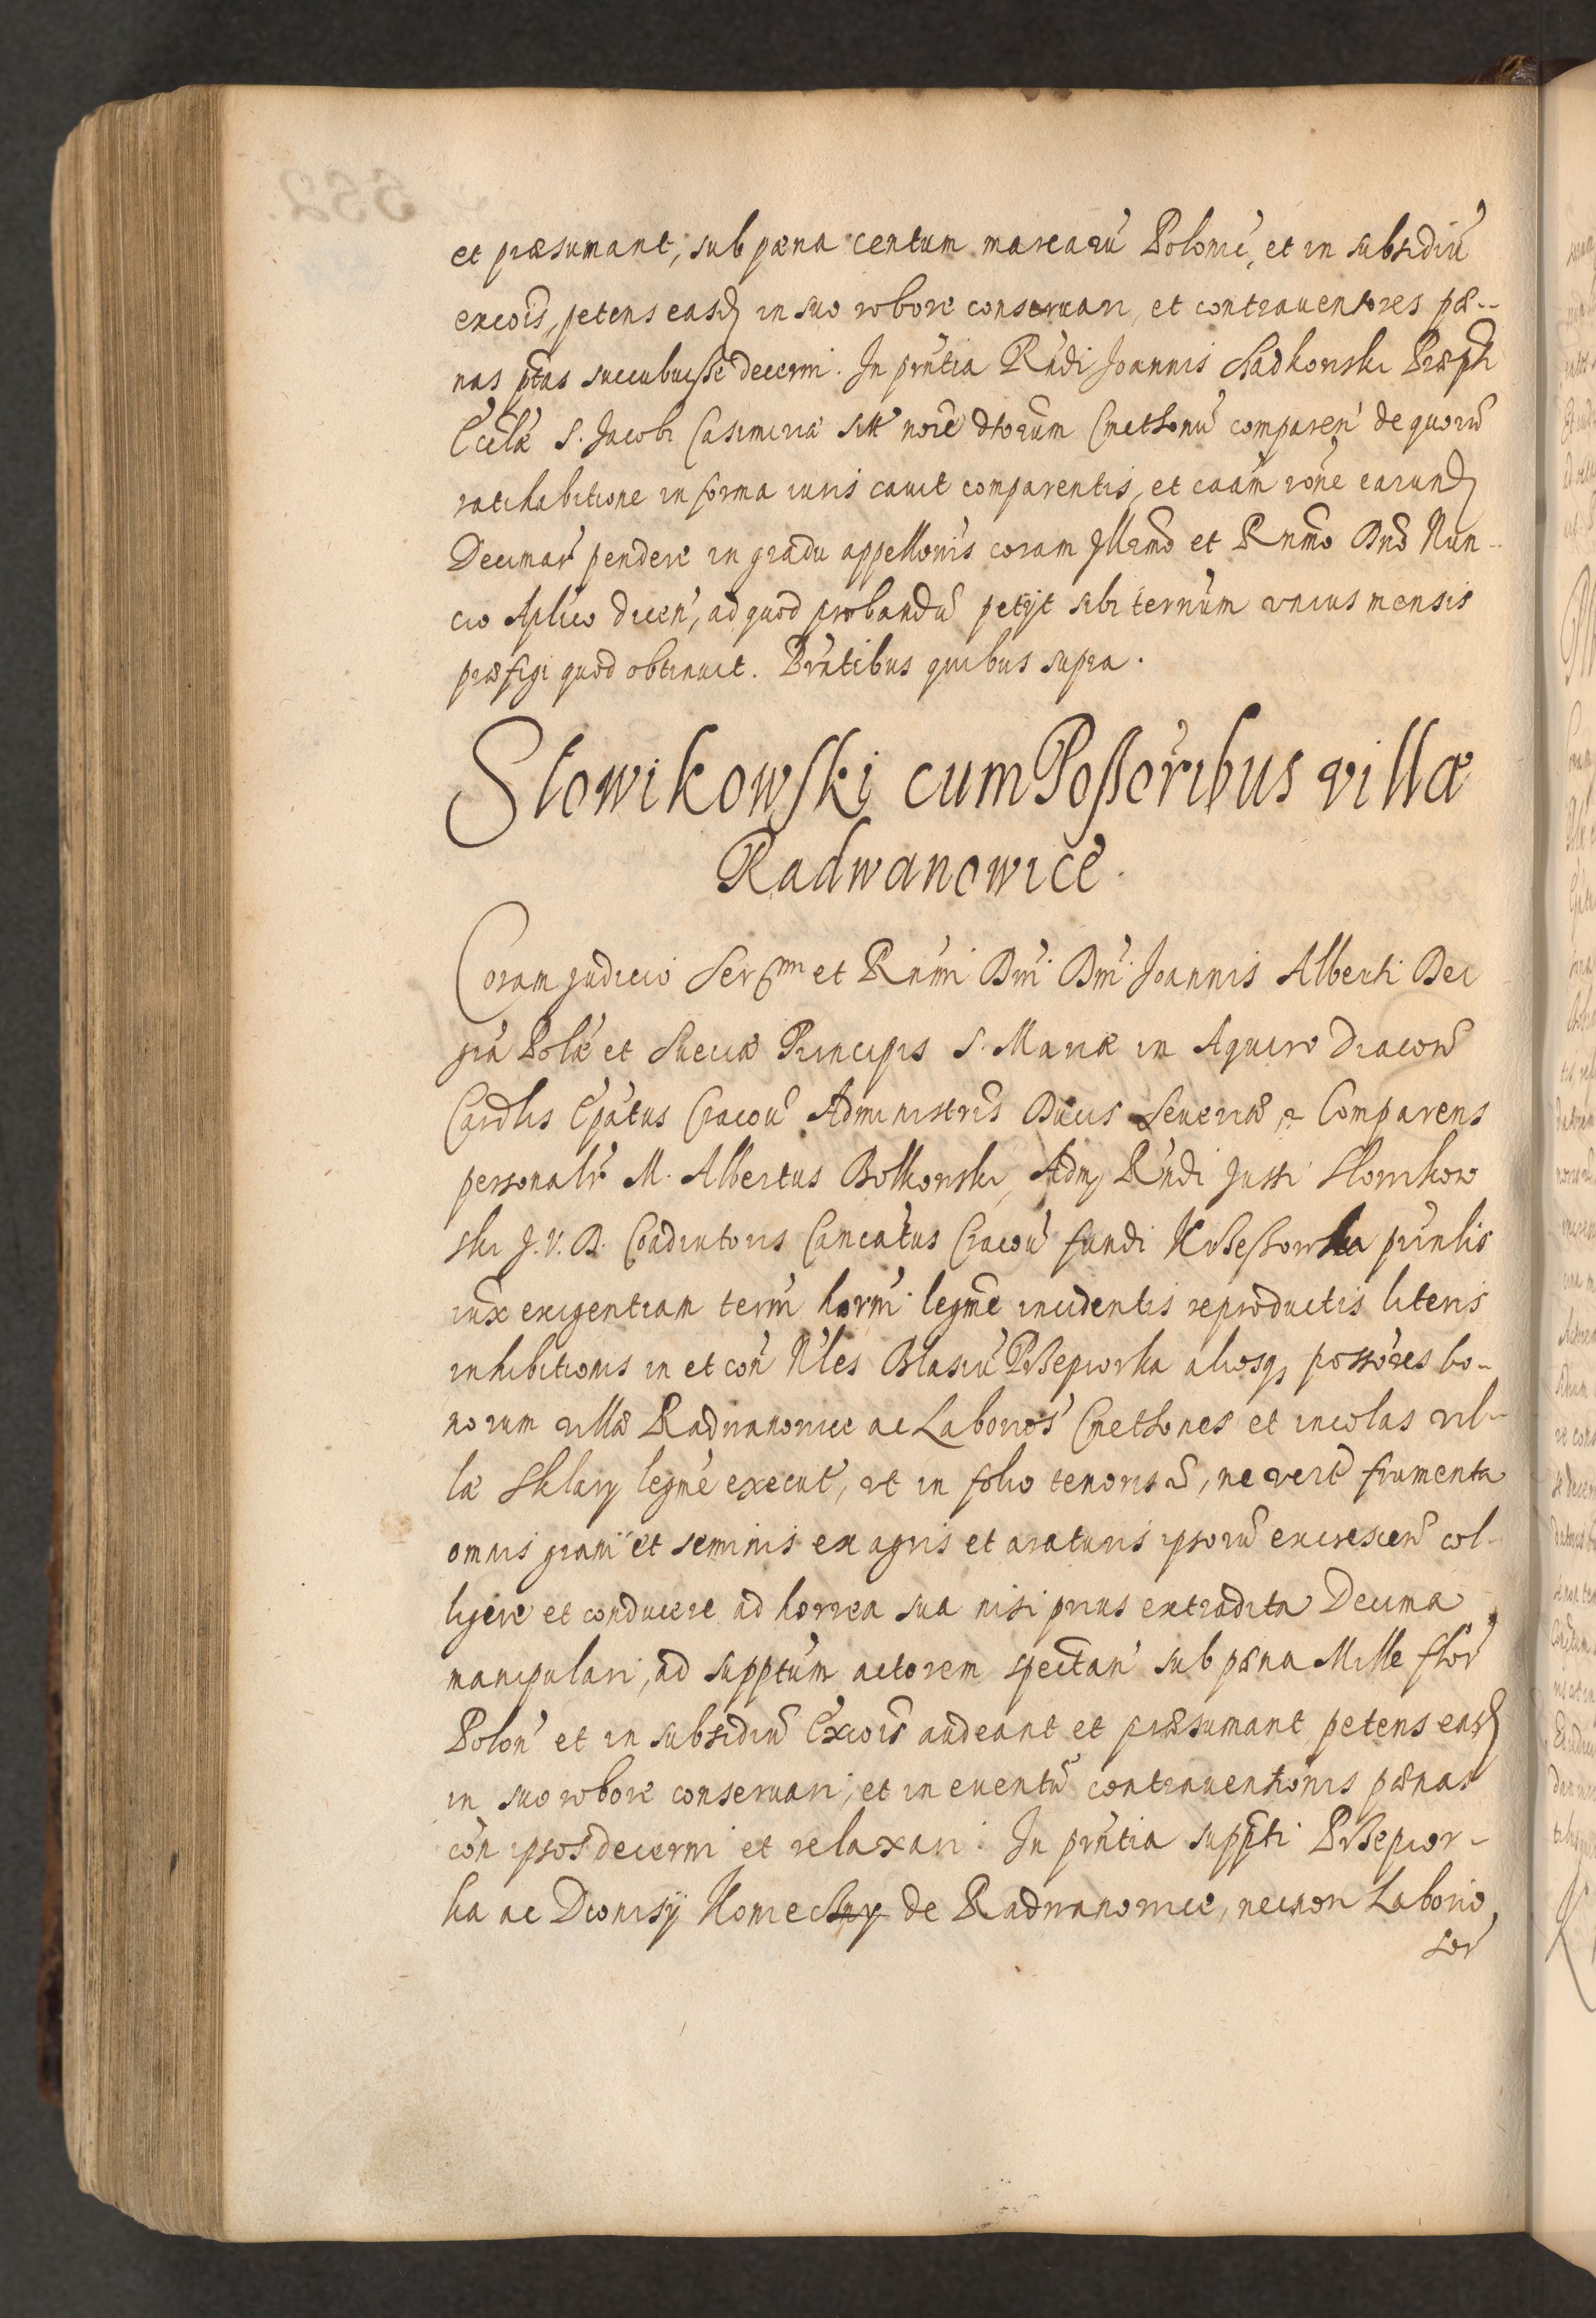 et præsumant, sub pæna centum marcarũ Poloniẽ, et in subsidiũ
excoĩs, petens easd in suo robore conseruari, et contrauentores pæ--
nas ptas succubuisse decerni. In pñtia Rñdi Joannis Sladkowski Præpti
Ecclæ S. Jacobi Casimiriæ noie dtorum Cmethonũ comparen̄ de quorũ
ratihabitione in forma iuris cauit comparentis, et caãm rõne earund
Decimar̃ pendere in gradu appellonis coram Illrmõ et Rnmõ Dnõ Nun-
cio Aplico dicen̄, ad quod probandũ petijt sibi ternum vnius mensis
præfigi quod obtinuit. Pñtibus quibus supra.
Słowikowski cum Possoribus villæ
Radwanowice.
Coram Judicio Ser^mi et Rnmi Dni Dni Joannis Alberti Dei
gra Polæ et Sueciæ Principis S. Mariæ in Aquiro Diacoñ
Cardlis Epatus Cracoũ Administris Ducis Seueriæ Comparens
personalr̃ M. Albertus Bolkowski, Adm Rndi Justi Slowikow
ski J. V. D. Coadiutoris Cancatus Cracoũ fundi prinlis
iux̃ exigentiam termi horm̃ legme incidentis reproductis literis
inhibitionis in et con̄ Nles Blasiũ Przepiorka aliosq possores bo-
norum villæ Radwanowice ac Laborios̃ Cmethones et incolas vil-
læ Sklary legme execut̃, vt in folio tenoris, ne frumenta
omnis grani et seminis ex agris et araturis ipsorũ excrescen̄ col-
ligere et conducere ad horrea sua nisi prius extradita Decima
manipulari, ad supptum actorem spectan̄ sub pæna Mille flor̃
Polon̄ et in subsidiũ Excois audeant et præsumant petens easd
in suo robore conseruari, et in euentũ contrauentionis pænas
con̄ ipsos decerni et relaxari. In pñtia suppti Przepior-
ka ac Dionisÿ de Radwanowice, necnon Laborio
sor̃